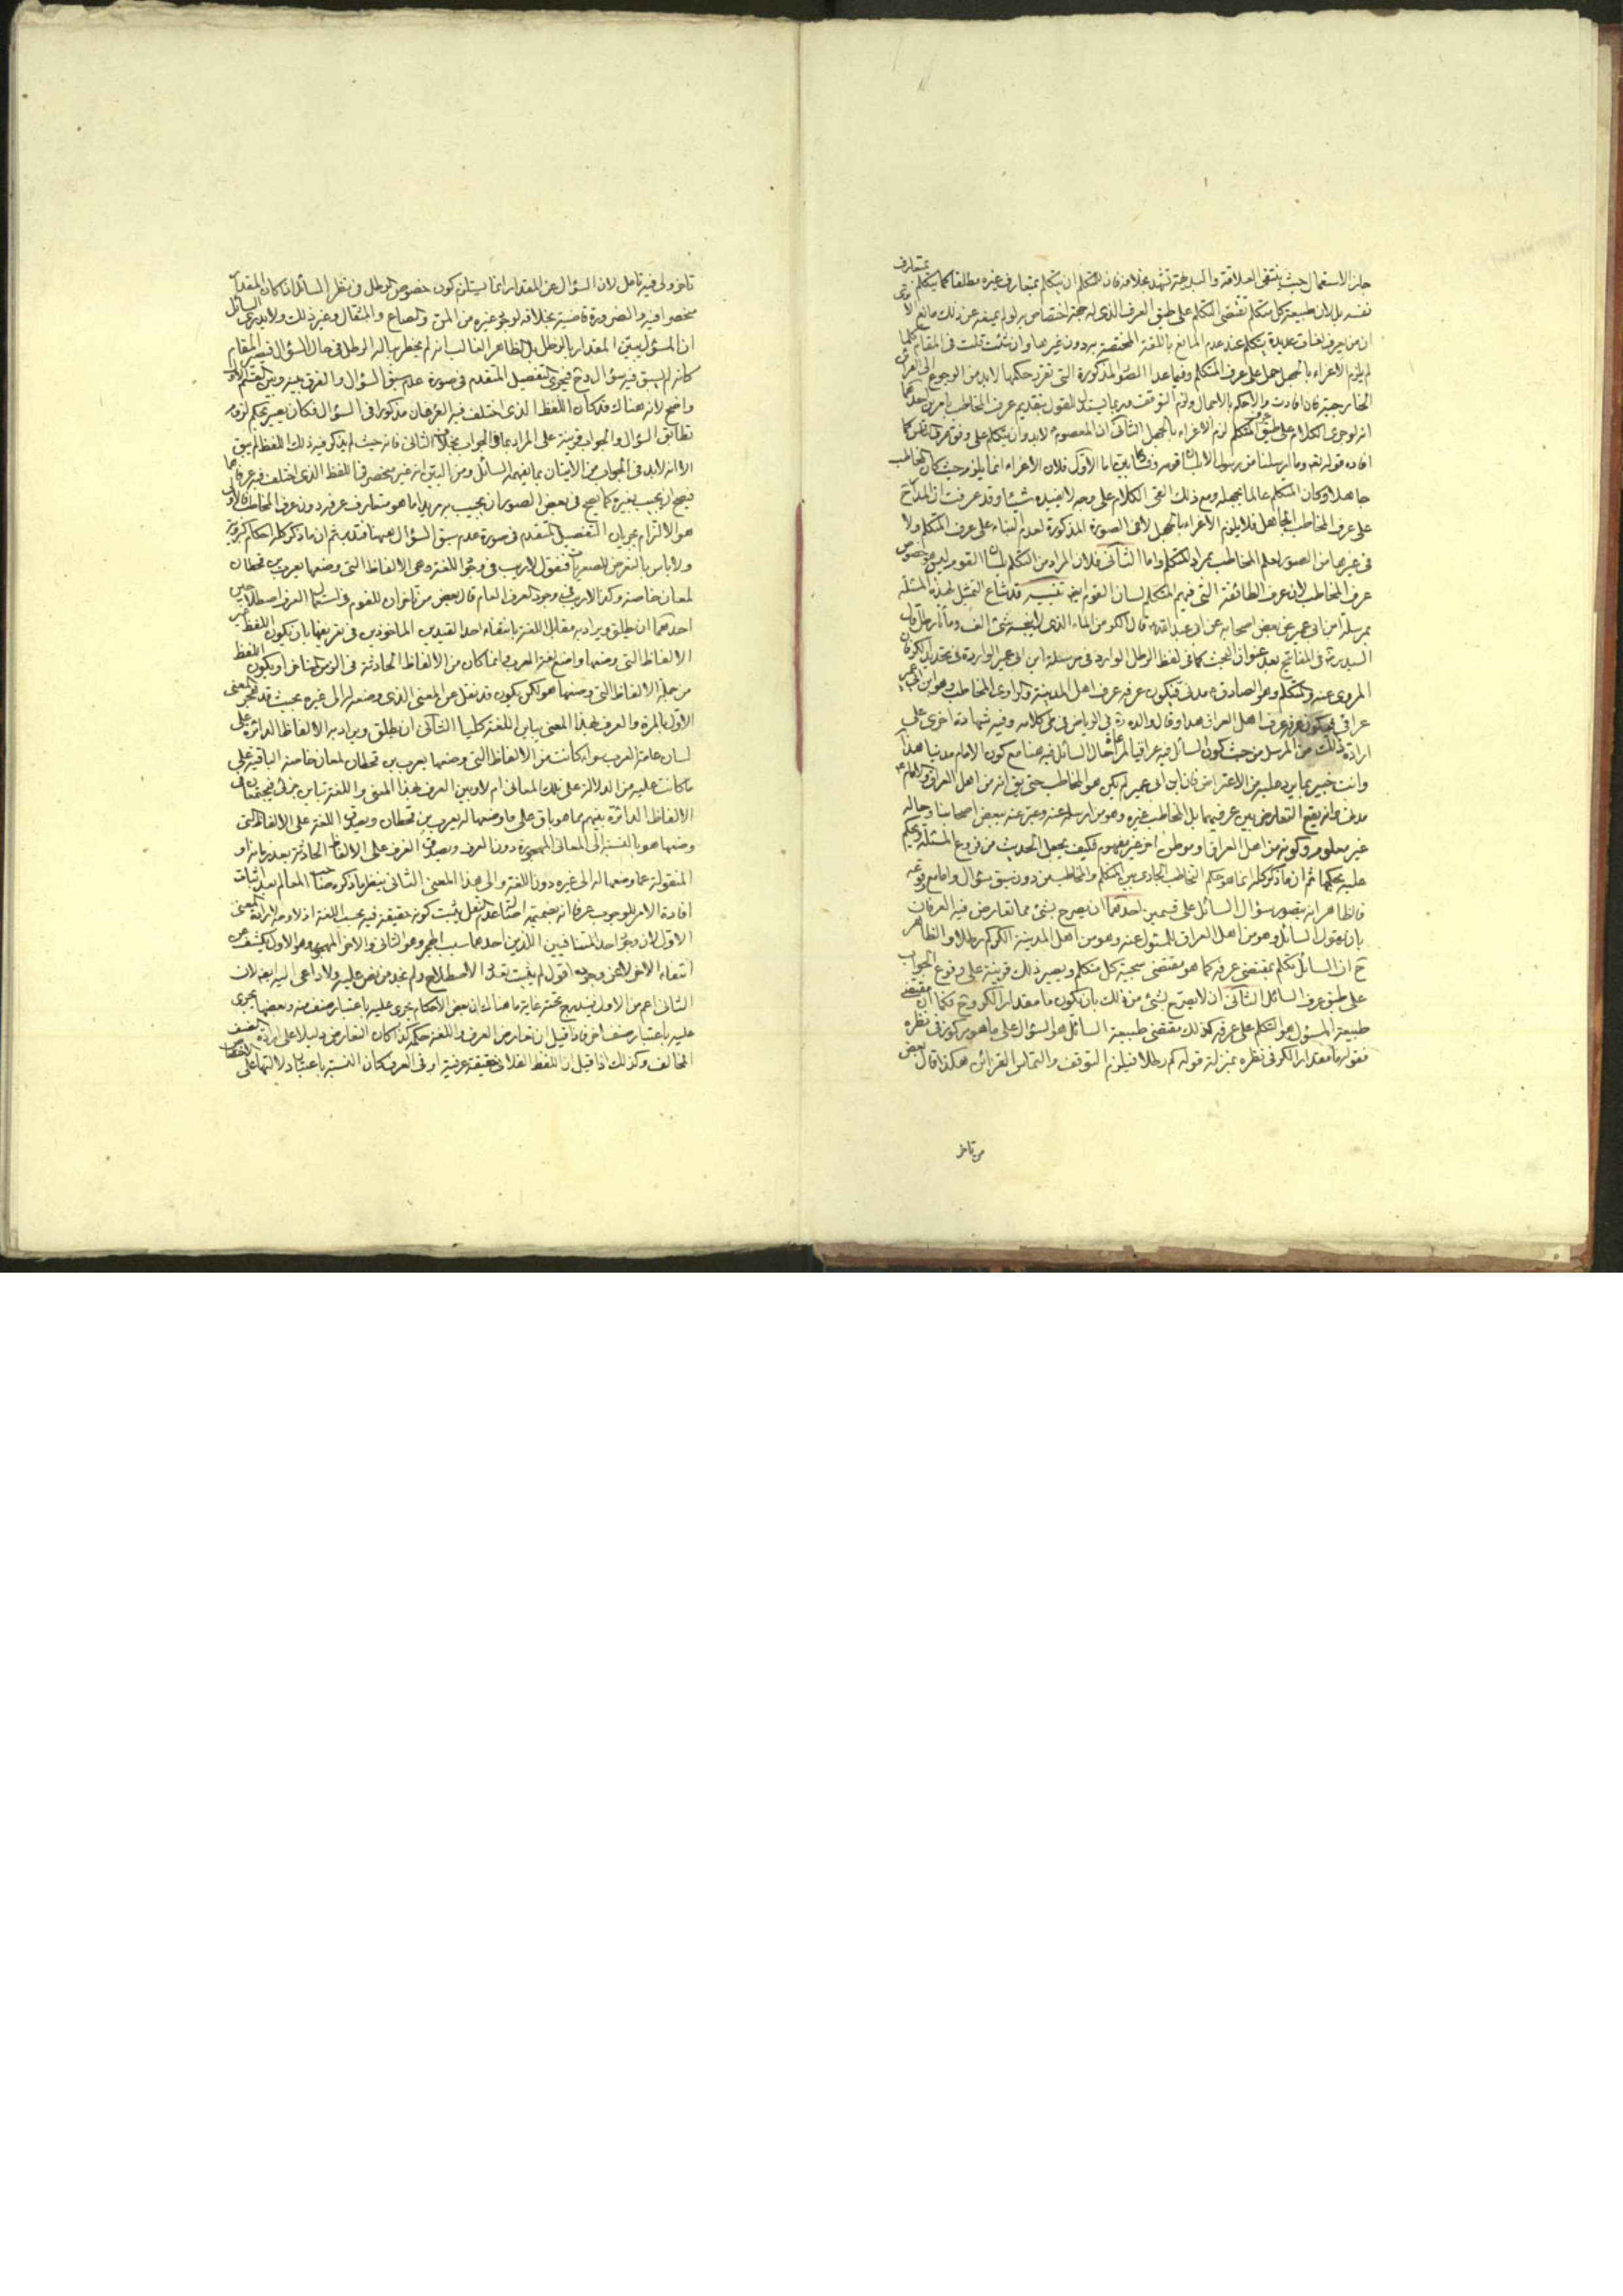 جاز الاستعمال حيث ينتفى العلاقة والبديهة تشهد بخلافه فان للمتكلم ان يتكلم بمتعارف غيره مطلقا كما يتكلم بمتعارف
نفسه بل لان طبيعة كل متكلم تقتضى التكلم على طبق العرف الذى له جهة اختصاص به لو لم يمنعه عن ذلك مانع الا ترى
ان من يعرف لغات عديدة يتكلم عند عدم المانع باللغة المختصة به دون غيرها وان شئت قلت فى المقام كلما
لم يلزم الاغراء بالجهل حمل على عرف المتكلم وفيما عدا الصور المذكورة التى تقرر حكمها لابد من الرجوع الى القرائن
الخارجية فان افادت والا حكم بالاجمال ولزم التوقف وربما يستدل للقول بتقديم عرف المخاطب بامرين احدهما
انه لو جرى الكلام على طبق عرف المتكلم لزم الاغراء بالجهل الثانى ان المعصوم لابد وان يتكلم على وفق عرف المخاطب كما
افاده قوله تعالى وما ارسلنا من رسول الا بلسان قومه وفيهما نظر اما الاول فلان الاغراء انما يلزم حيث كان المخاطب
جاهلا وكان المتكلم عالما بجهله ومع ذلك القى الكلام على وجه لا يفيده شيئا وقد عرفت ان المدار ح
على عرف المخاطب الجاهل فلا يلزم الاغراء بالجهل لا فى الصورة المذكورة لعدم البناء على عرف المتكلم ولا
فى غيرها من الصور لعلم المخاطب بمراد المتكلم واما الثانى فلان المراد من التكلم بلسان القوم ليس خصوص
عرف المخاطب لان عرف الطائفة التى فيهم المتكلم لسان القوم ايضا تنبيه قد شاع التمثيل لهذه المسئلة
بمرسلة ابن ابى عمير عن بعض اصحابه عن ابى عبد الله قال الكر من الماء الذى لا ينجسه شئ الف ومأتا رطل قال
السيد ره فى المفاتيح بعد عنوان البحث كما فى لفظ الرطل الوارد فى مرسلة ابن ابى عمير الواردة فى تحديد الكر فان
المروى عنه والمتكلم وهو الصادق ع مدنى فيكون عرفه عرف اهل المدينة والراوى المخاطب وهو ابن ابى عمير
عراقى فيكون عرفه عرف اهل العراق هذا وقال والده ره فى الرياض فى طى كلامه وفيه شهادة اخرى على
ارادة ذلك من المرسل من حيث كون السائل فيه عراقيا لمراعاة حال السائل فيه هنا مع كون الامام مدنيا هذا
وانت خبير بما يرد عليه من الاعتراض فان ابن ابى عمير لم يكن هو المخاطب حتى يق انه من اهل العراق والامام
مدنى وانه يقع التعارض بين عرفيهما بل المخاطب غيره وهو من ارسله عنه وعبر عنه ببعض اصحابنا وحاله
غير معلوم وكونه من اهل العراق او موطن اخر غير مفهوم فكيف يجعل الحديث من فروع المسئلة ويحكم
عليه بحكمها ثم ان ما ذكر كله انما هو حكم التخاطب الجارى بين المتكلم والمخاطب من دون سبق سؤال واما مع وقوعه
فالظاهر انه يتصور سؤال السائل على قسمين احدهما ان يصرح بشئ مما تعارض فيه العرفان
بان يقول السائل وهو من اهل العراق للمسئول عنه وهو من اهل المدينة الكر كم رطلا والظاهر
ح ان السائل يتكلم بمقتضى عرفه كما هو مقتضى سجية كل متكلم ويصير ذلك قرينة على وقوع الجواب
على طبق عرف السائل الثانى ان لا يصرح بشئ من ذلك بان يكون ما مقدار الكر وح فكما ان مقتضى
طبيعة المسئول هو التكلم على عرفه كذلك مقتضى طبيعة السائل هو السؤال على ما هو مركوز فى نظره
فقوله ما مقدار الكر فى نظره بمنزلة قوله كم رطلا فيلزم التوقف والتماس القرائن هكذا قال بعض
من تاخر
تاخر ولى فيه تامل لان السؤال عن المقدار انما يستلزم كون خصوص الرطل فى نظر السائل اذا كان المقدار
منحصرا فيه والضرورة قاضية بخلافه لوجود غيره من المن والصاع والمثقال وغير ذلك ولا يدرى السائل
ان المسئول يبين المقدار بالرطل بل الظاهر الغالب انه لم يخطر بباله الرطل فى حال السؤال فيصير المقام
كانه لم يسبق فيه سؤال وح فيجرى التفصيل المتقدم فى صورة عدم سبق السؤال والفرق بينه وبين القسم الاول
واضح لانه هناك قد كان اللفظ الذى اختلف فيه العرفان مذكورا فى السؤال فكان يصير بحكم لزوم
تطابق السؤال والجواب قرينة على المراد بما فى الجواب بخلاف الثانى فانه حيث لم يذكر فيه ذلك اللفظ لم يبق
الا انه لابد فى الجواب من الاتيان بما يفهمه السائل ومن البين انه غير منحصر فى اللفظ الذى اختلف فيه عرفاهما
فيصح ان يجيب بغيره كما يصح فى بعض الصور ان يجيب به مريدا ما هو متعارف عرفه دون عرف المخاطب فالاولى
هو الالتزام بجريان التفصيل المتقدم فى صورة عدم سبق السؤال هيهنا فتدبر ثم ان ما ذكر كله احكام كبروية
ولا باس بالتعرض للصغريات فنقول لا ريب فى وجود اللغة وهى الالفاظ التى وضعها يعرب بن قحطان
لمعان خاصة وكذا لا ريب فى وجود العرف العام قال بعض من تاخر ان للقوم فى استعمال العرف اصطلاحين
احدهما ان يطلق ويراد به مقابل اللغة بانتفاء احد القيدين الماخوذين فى تعريفها بان يكون اللفظ غير
الالفاظ التى وضعها واضع لغة العرب وانما كان من الالفاظ الحادثة فى الزمن المتاخر او يكون اللفظ
من جملة الالفاظ التى وضعها هو لكن يكون قد نقل عن المعنى الذى وضعه له الى غيره بحيث قد هجر المعنى
الاول بالمرة والعرف بهذا المعنى يباين اللغة كليا الثانى ان يطلق ويراد به الالفاظ الدائرة على
لسان عامة العرب سواء كانت من الالفاظ التى وضعها يعرب بن قحطان لمعان خاصة الباقية على
ما كانت عليه من الدلالة على تلك المعانى ام لا وبين العرف بهذا المعنى واللغة تباين جزئى فيجتمعان فى
الالفاظ الدائرة بينهم مما هو باق على ما وضعها له يعرب بن قحطان ويصدق اللغة على الالفاظ التى
وضعها هو بالنسبة الى المعانى المهجورة دون العرف ويصدق العرف على الالفاظ الحادثة بعد زمانه او
المنقولة عما وضعها له الى غيره دون اللغة والى هذا المعنى الثانى ينظر ما ذكره صاحب المعالم بعد اثبات
افادة الامر للوجوب عرفا انه بضميمة اصالة عدم النقل يثبت كونه حقيقة فيه بحسب اللغة اذ لا وجه لارادة المعنى
الاول لان وجود احد المتنافيين اللذين احدهما سبب الهجر وهو الثانى والاخر المهجور وهو الاول يكشف عن
انتفاء الاخر لا عن وجوده اقول لم يثبت تعدد الاصطلاح ولم نجد من نص عليه ولا داعى اليه ايضا لان
الثانى اعم من الاول فيندرج تحته غاية ما هناك ان بعض الاحكام يجرى عليه باعتبار صنف منه وبعضها يجرى
عليه باعتبار صنف اخر فاذا قيل ان تعارض العرف واللغة حكمه كذا كان التعارض دليلا على ارادة الصنف
المخالف وكذلك اذا قيل ان اللفظ الفلانى حقيقة عرفية او فى العرف كان النسبة باعتبار دلالتها على